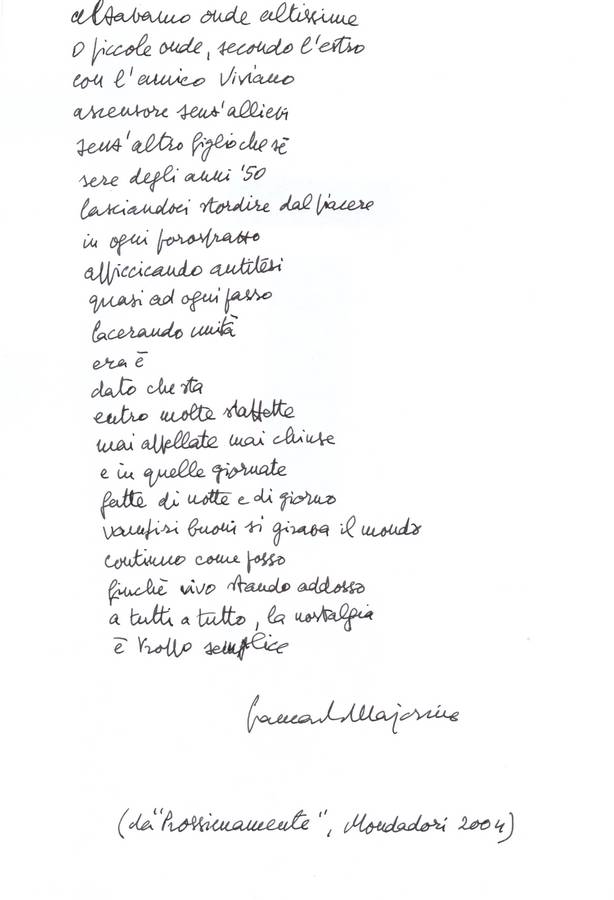 alzavamo onde altissime
o piccole onde, secondo l'estro
con l'amico Viviano
ascensore senz'allievi
senz'altro figlio che sé
sere degli anni '50
lasciandoci stordire dal piacere
in ogni
appiccicando antitesi
quasi ad ogni passo
lacerando unità
era è
dato che sta
entro molte staffette
mai appellate mai chiuse
e in quelle giornate
fatte di notte e di giorno
vampiri buoni si girava il mondo
continuo come posso
finchè vivo stando addosso
a tutti a tutto, la nostalgia
è troppo semplice
Giancarlo Majorino
(da "Prossimamente", Mondadori 2004)